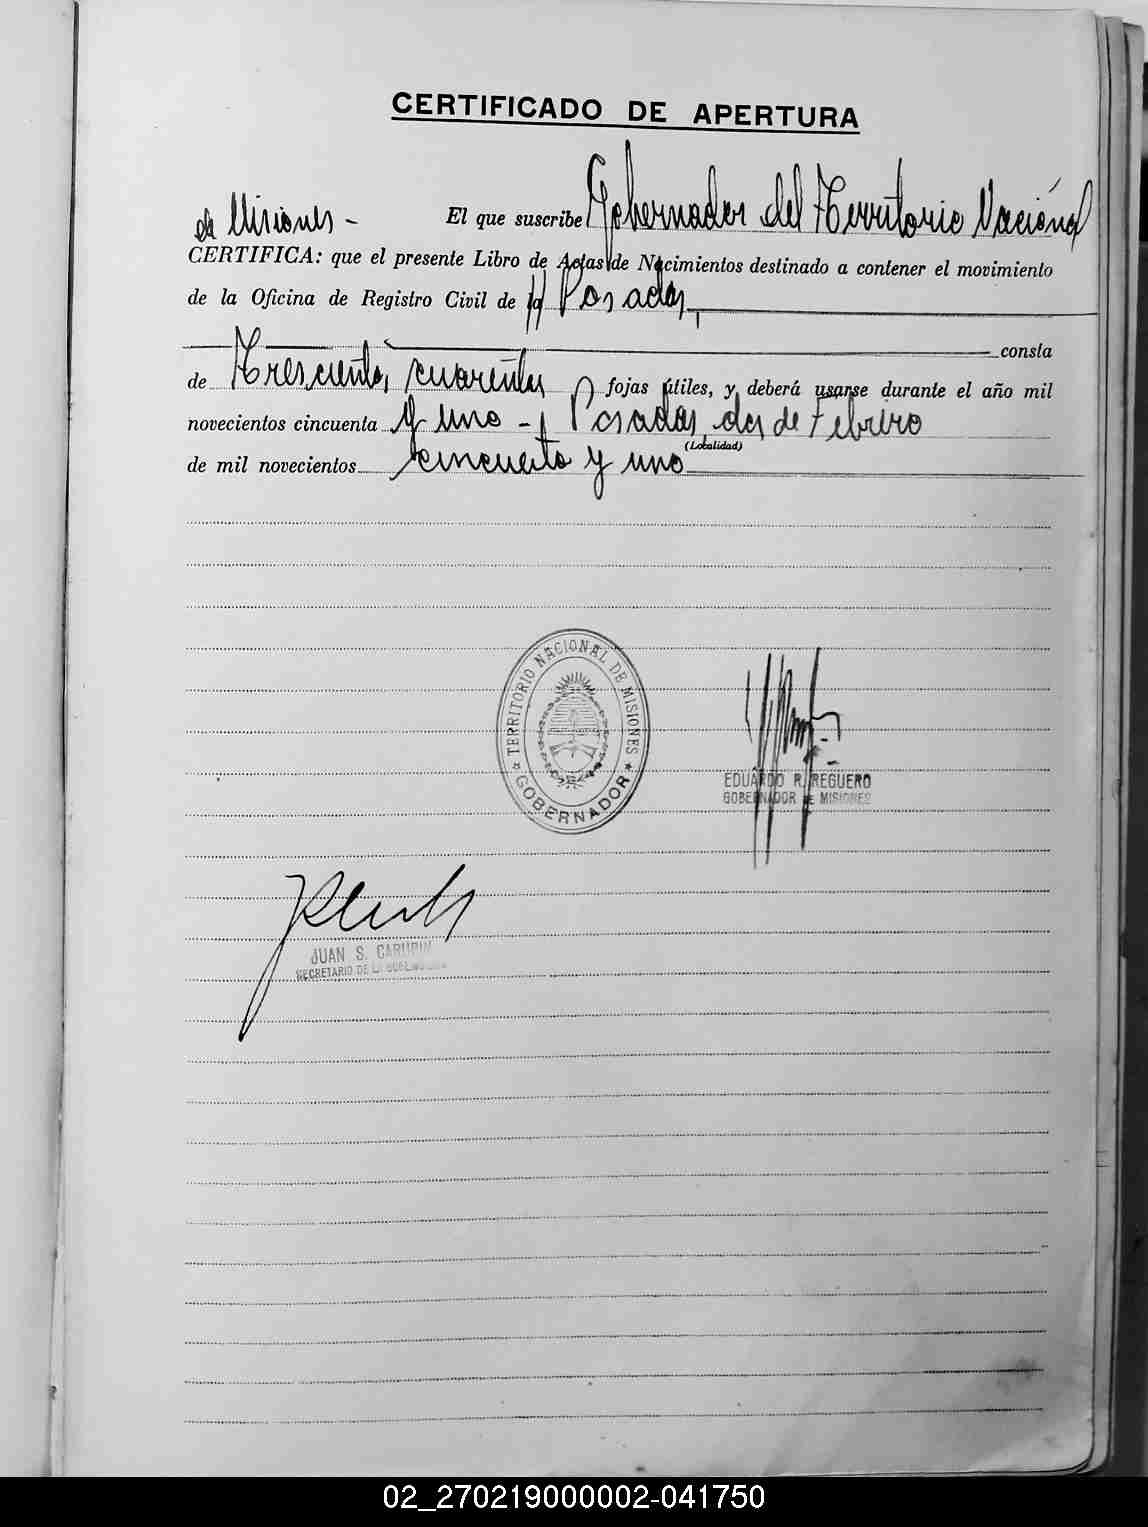 CERTIFICADO DE APERTURA
El que suscribe Gobernador del Territorio Nacional
de Misiones -
CERTIFICA: que el presente Libro de Actas de Nacimientos destinado a contener el movimiento
de la Oficina de Registro Civil de la Posadas
consta
de Trescientas cuarenta fojas útiles, y deberá usarse durante el año mil
novecientos cincuenta y uno - Posadas, dos de Febrero
(Localidad)
de mil novecientos cincuenta y uno
TERRITORIO NACIONAL DE MISIONES
GOBERNADOR
EDUARDO R. REGUERO
GOBERNADOR DE MISIONES
JUAN S.
SECRETARIO DE LA
02_270219000002-041750